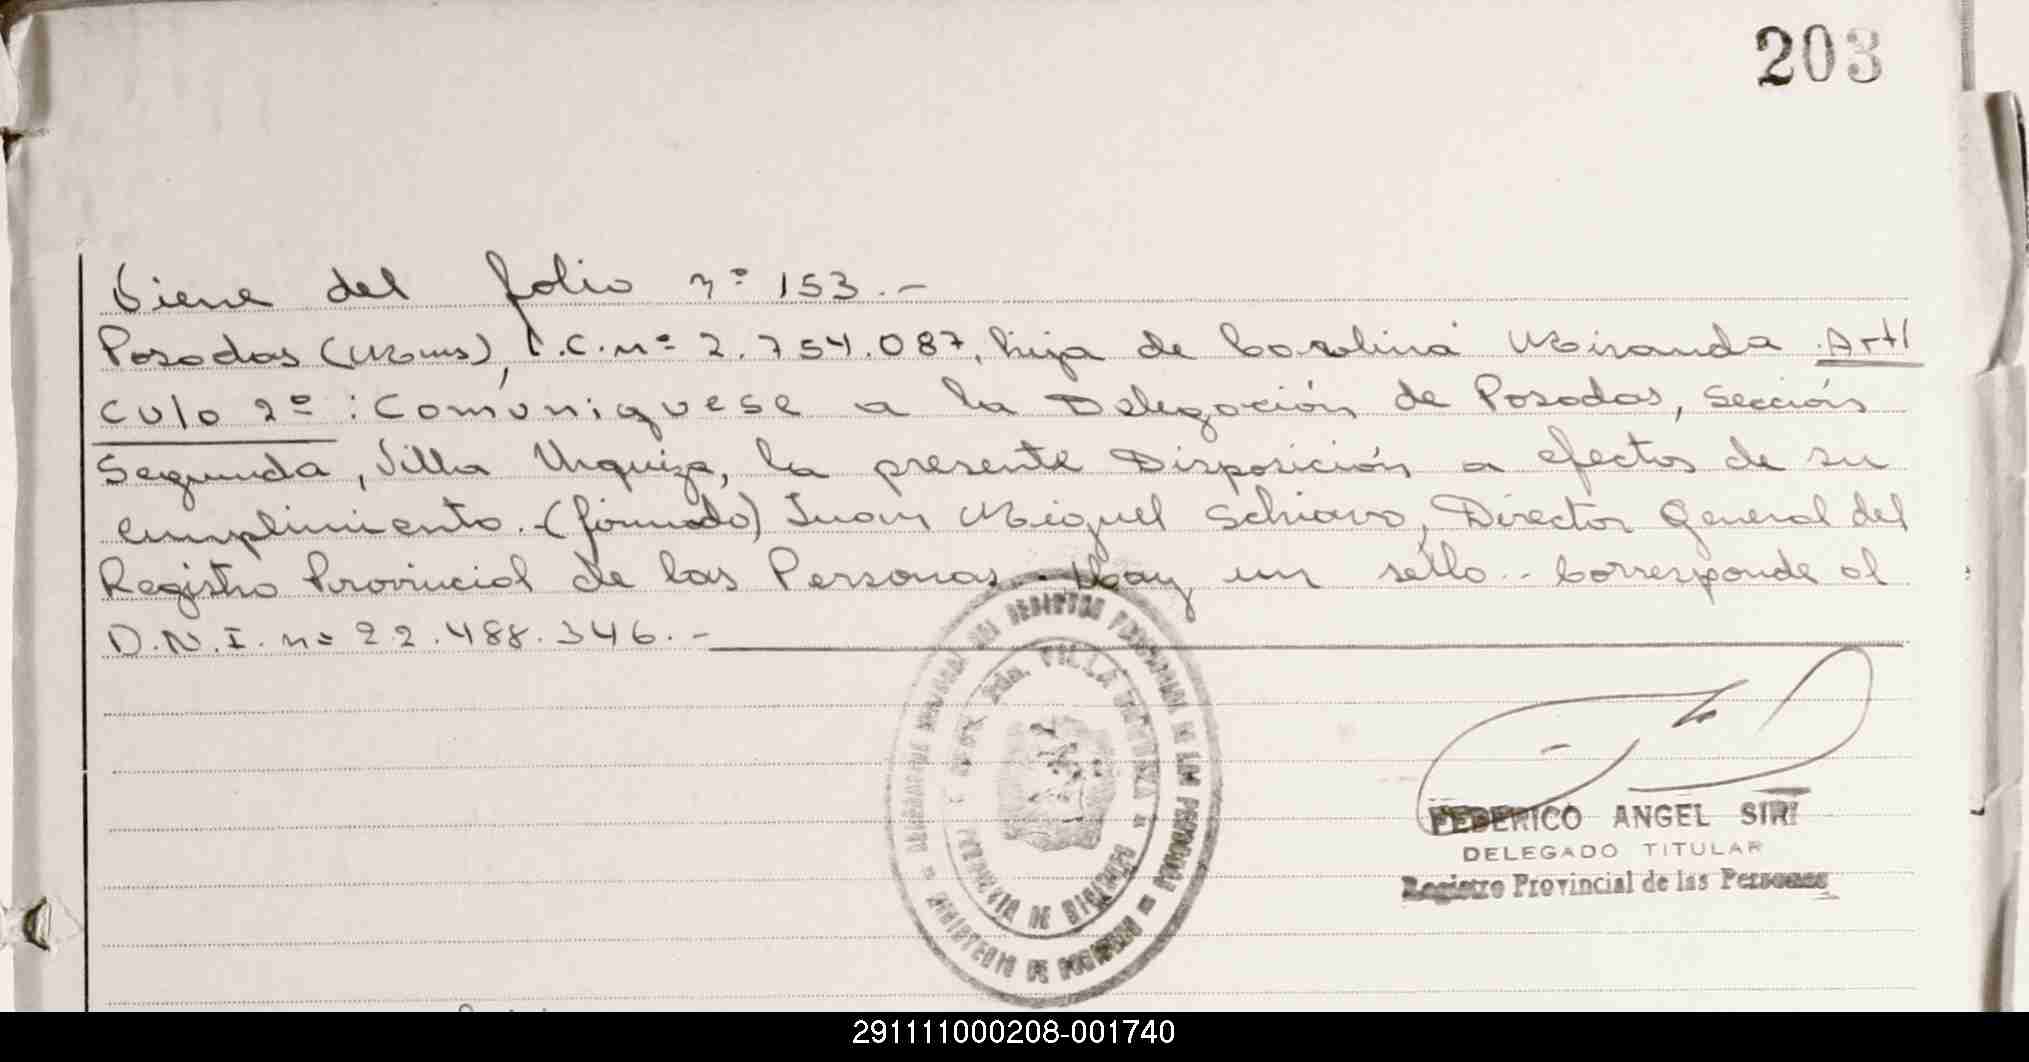 203
Viene del folio nº 153.-
Posadas (Mnes), L.C.nº 2.754.087, hija de Carolina Miranda. Artí
culo 2º: Comuníquese a la Delegación de Posadas, Sección
Segunda, Villa Urquiza, la presente Disposición a efectos de su
cumplimiento.-(firmado) Juan Miguel Schiavo, Director General del
Registro Provincial de las Personas. Hay un sello.- Corresponde al
D.N.I. nº 22.488.346.-
VILLA URQUIZA
PROVINCIA DE MISIONES
MINISTERIO DE GOBIERNO
FEDERICO ANGEL SIRI
DELEGADO TITULAR
Registro Provincial de las Personas
291111000208-001740